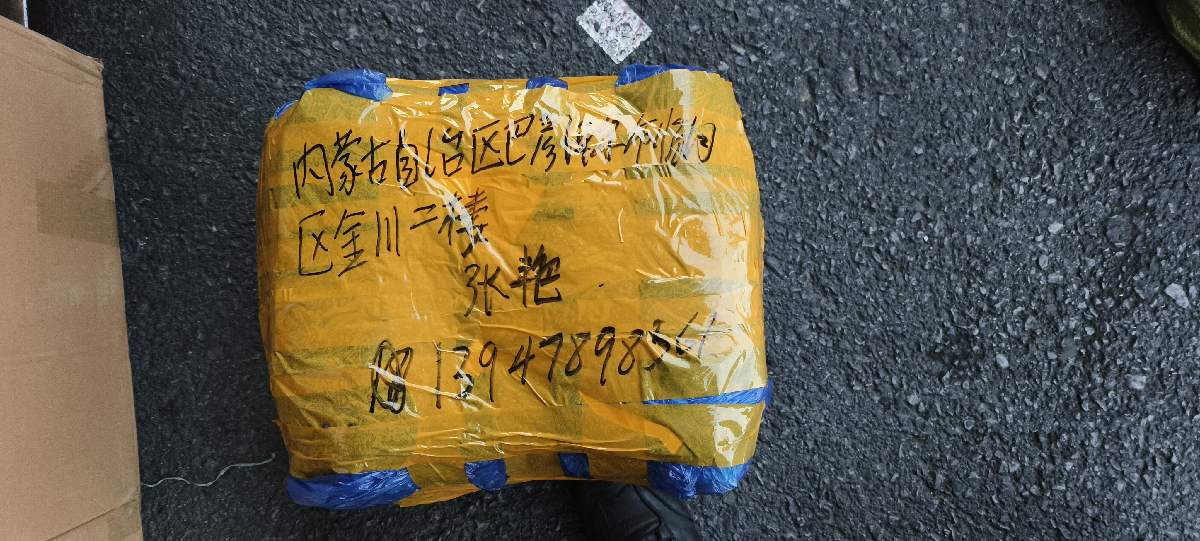 内蒙古自治区巴彦淖尔市临河
区金川二楼
张艳
13947898364